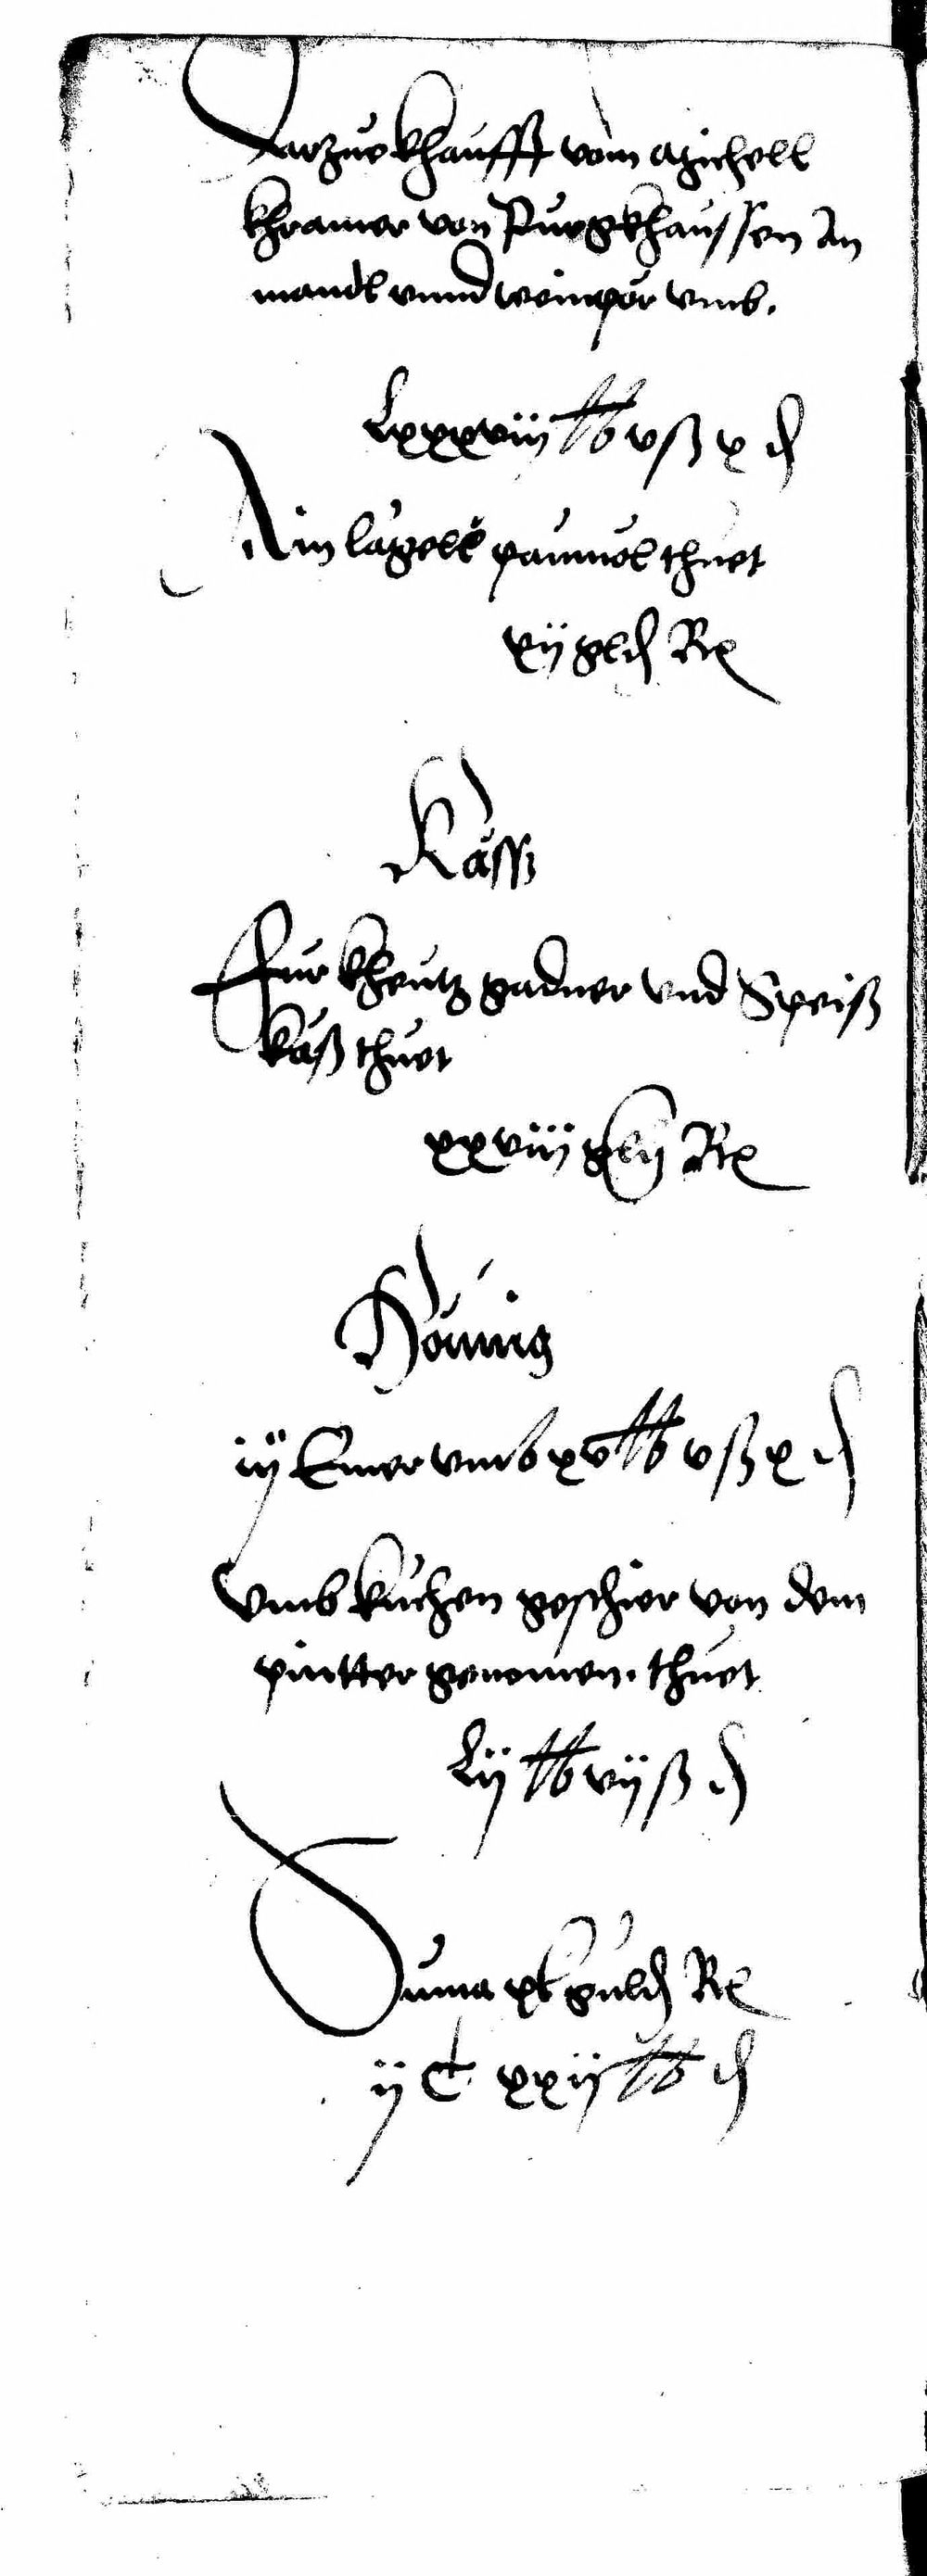 Darzue khaufft vom Michell
khramer von Purgkhaussen An
mandl vnnd weinper vmb.
Lxxxviij lb v ß x d
Ain lagell pamöl thuet
xij gld Rh
Käss
Fur kheutz gadner vnd Speiß
käß thuet
xxviij gld Rh
Hönnig
iij Emer vmb xv lb v ß x d
Vmb kuchen geschier von dem
pintter genomen. thuet
Lij lb vij ß d
Suma xl guld Rh
ij C xxij lb d